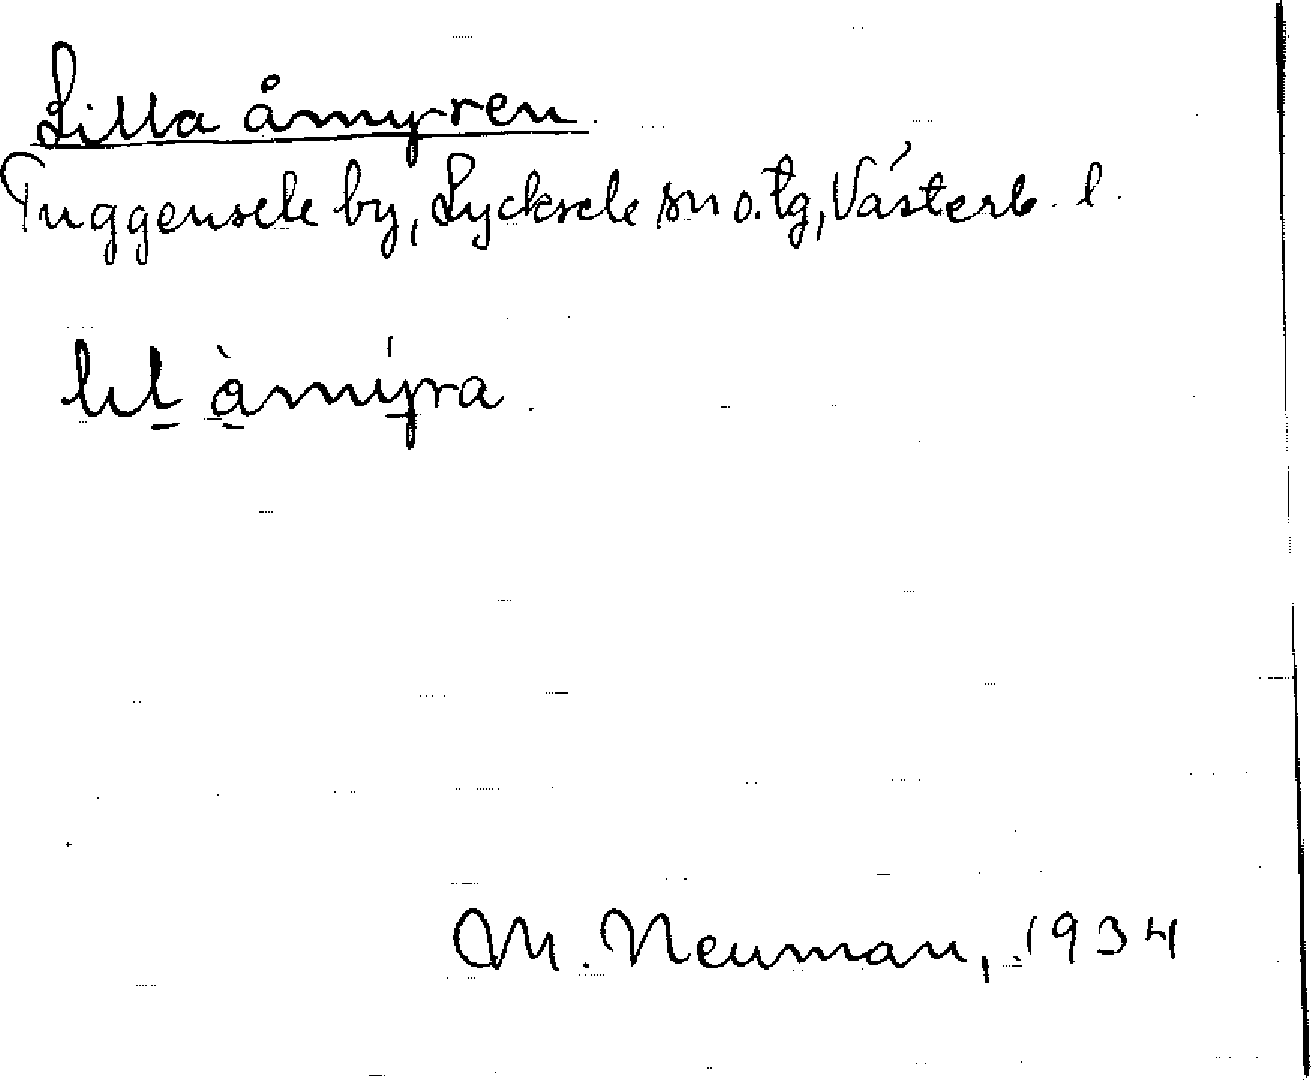 Lilla åmyren.
Tuggensele by, Lycksele sn o. tg, Västerb. l.
àmýra.
M. Neuman, 1934